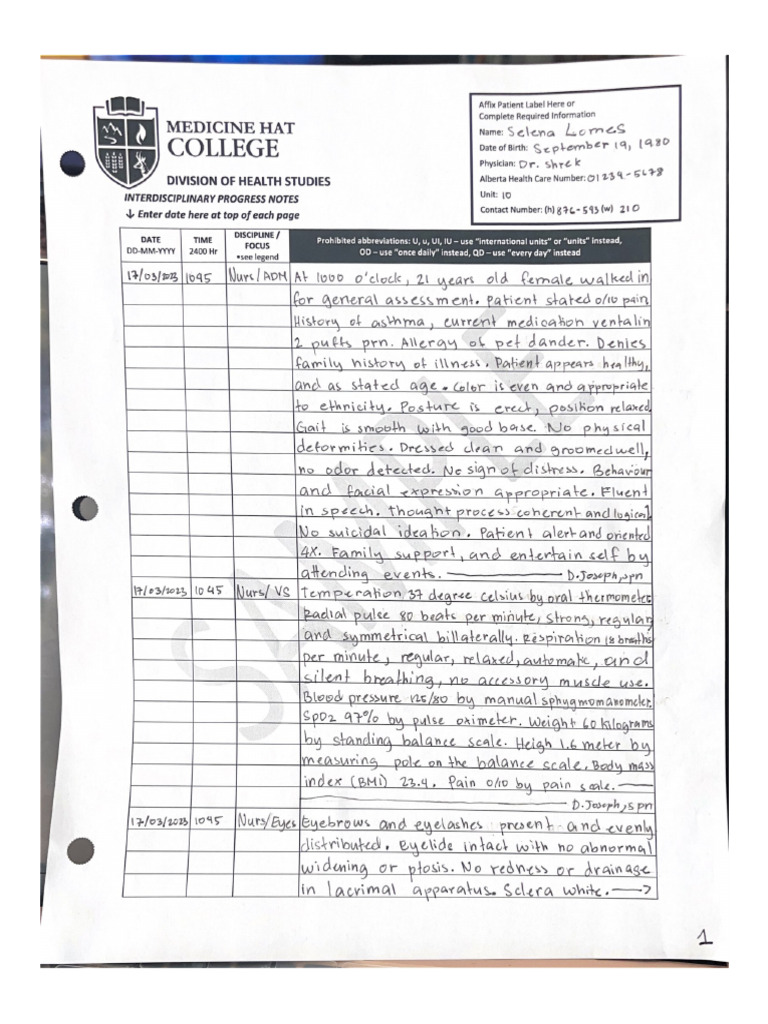 MEDICINE HAT
COLLEGE
DIVISION OF HEALTH STUDIES
INTERDISCIPLINARY PROGRESS NOTES
↓ Enter date here at top of each page
Affix Patient Label Here or
Complete Required Information
Name: Selena Lomes
Date of Birth: September 19, 1980
Physician: Dr. Shrek
Alberta Health Care Number: 01234-5678
Unit: 10
Contact Number: (h) 876-593 (w) 210
DATE
DD-MM-YYYY
TIME
2400 Hr
DISCIPLINE /
FOCUS
*see legend
Prohibited abbreviations: U, u, UI, IU – use "international units" or "units" instead,
OD – use "once daily" instead, QD – use "every day" instead
17/03/2023 1045 Nurs/ADM At 1000 o'clock, 21 years old female walked in
for general assessment. Patient stated 0/10 pain
History of asthma, current medication ventalin
2 puffs prn. Allergy of pet dander. Denies
family history of illness. Patient appears healthy,
and as stated age. Color is even and appropriate
to ethnicity. Posture is erect, position relaxed
Gait is smooth with good base. No physical
deformities. Dressed clean and groomed well,
no odor detected. No sign of distress. Behaviour
and facial expression appropriate. Fluent
in speech. Thought process coherent and logical
No suicidal ideation. Patient alert and oriented
4X. Family support, and entertain self by
attending events. D.Joseph, spn
17/03/2023 1045 Nurs/ VS Temperation 37 degree celsius by oral thermometer
Radial pulse 80 beats per minute, strong, regular
and symmetrical billaterally. Respiration 18 breaths
per minute, regular, relaxed, automatic, and
silent breathing, no accessory muscle use.
Blood pressure 125/80 by manual sphygmomanometer.
SpO2 97% by pulse oximeter. Weight 60 kilograms
by standing balance scale. Heigh 1.6 meter by
measuring pole on the balance scale. Body mass
index (BMi) 23.4. Pain 0/10 by pain scale.
D.Joseph, spn
17/03/2023 1045 Nurs/Eyes Eyebrows and eyelashes present and evenly
distributed. Eyelide intact with no abnormal
widening or ptosis. No redness or drainage
in lacrimal apparatus. Sclera white. →
1
SAMPLE